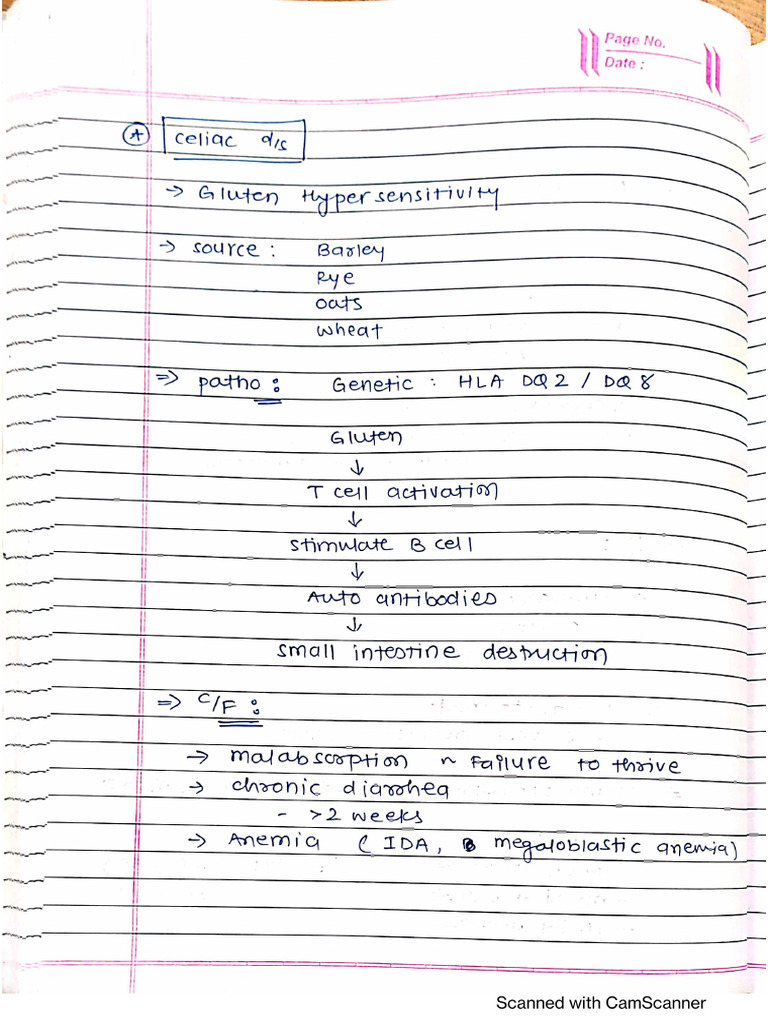 Page No.
Date :
A celiac d/s
→ Gluten Hypersensitivity
→ source : Barley
Rye
oats
wheat
⇒ patho : Genetic : HLA DQ2 / DQ 8
Gluten
↓
T cell activation
↓
stimulate B cell
↓
Auto antibodies
↓
small intestine destruction
⇒ C/F :
→ malabsorption ~ Failure to thrive
→ chronic diarrhea
- >2 weeks
→ Anemia ( IDA, megaloblastic anemia)
Scanned with CamScanner